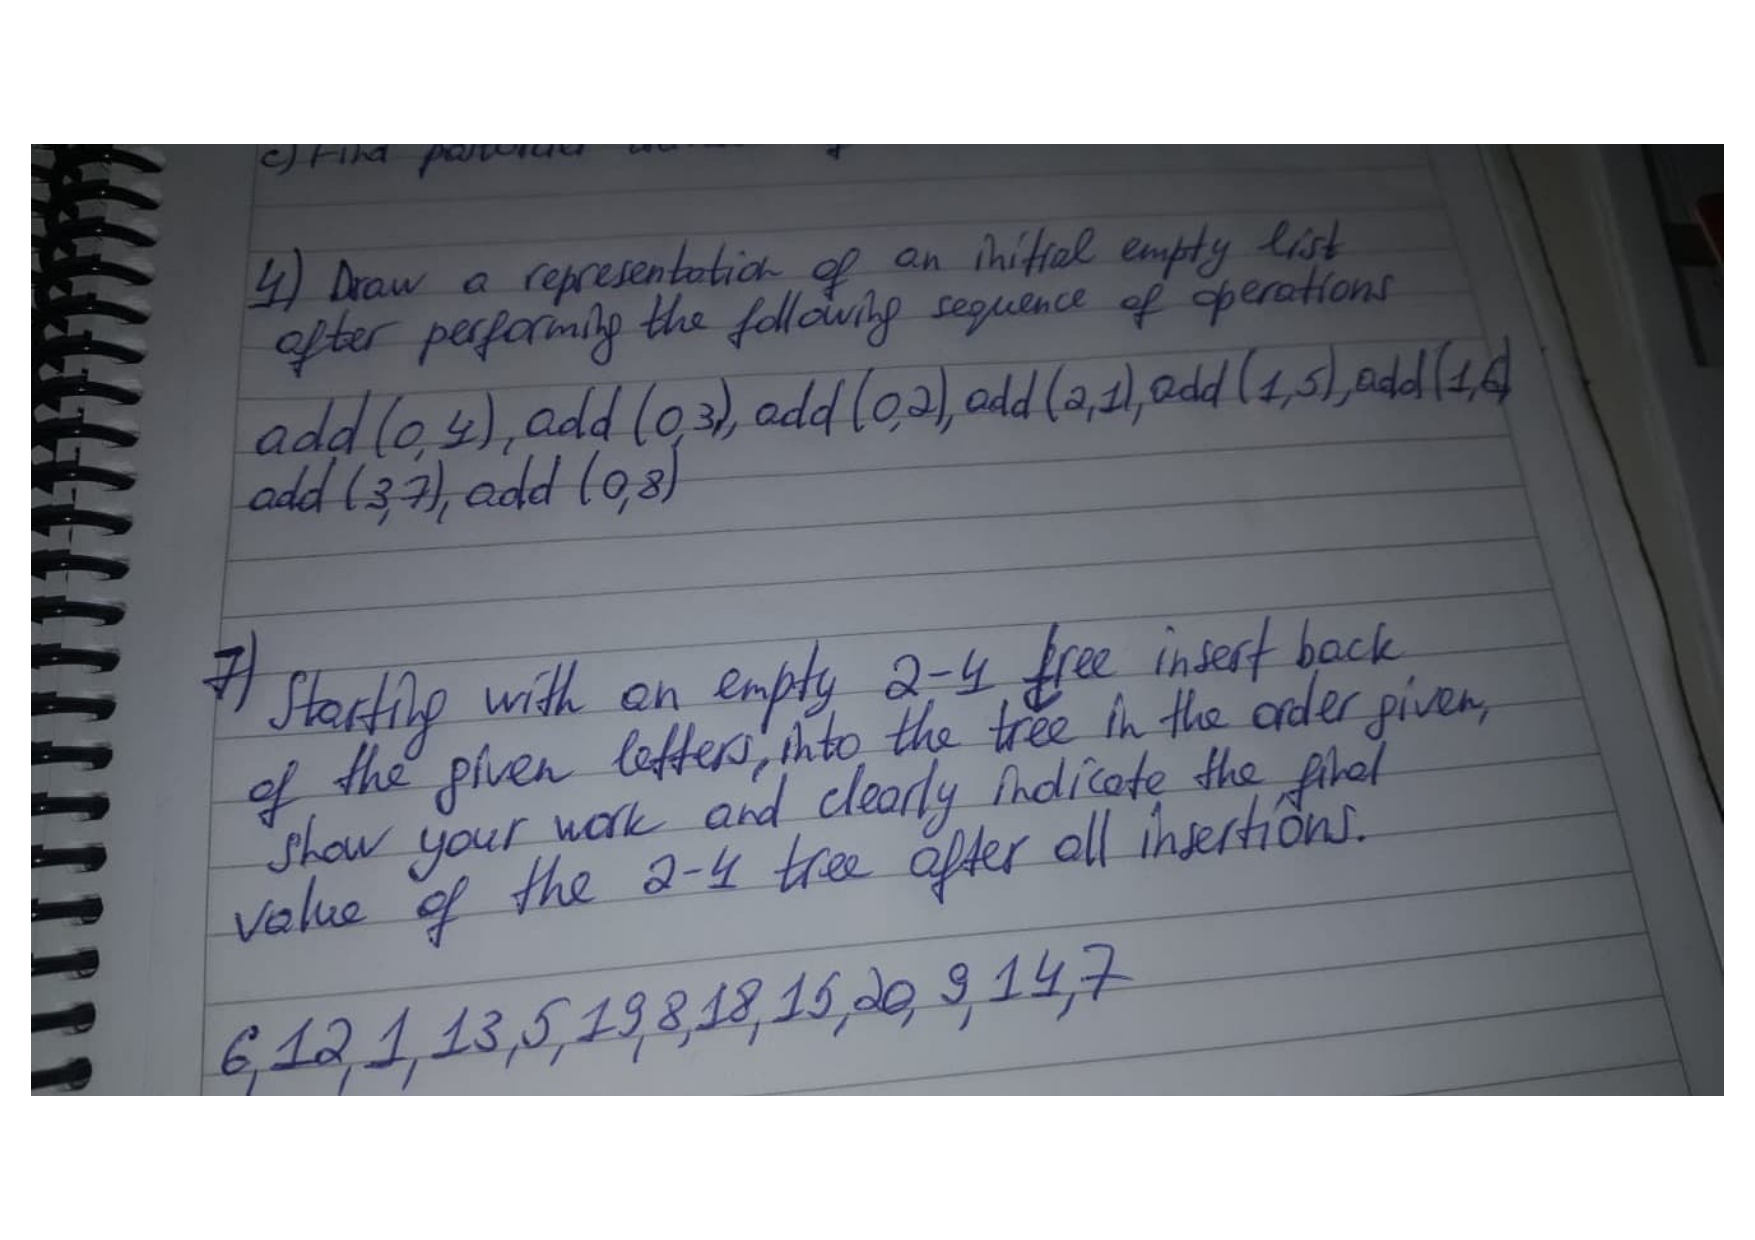 c) Find
4) Draw a representation of an initial empty list
after performing the following sequence of operations
add (0,4), add (0,3), add (0,2), add (2,1), add (1,5), add (1,6)
add (3,7), add (0,8)
7) Starting with an empty 2-4 tree insert back
of the given letters, into the tree in the order given,
show your work and clearly indicate the final
value of the 2-4 tree after all insertions.
6, 12, 1, 13, 5, 19, 8, 18, 15, 20, 9, 14, 7